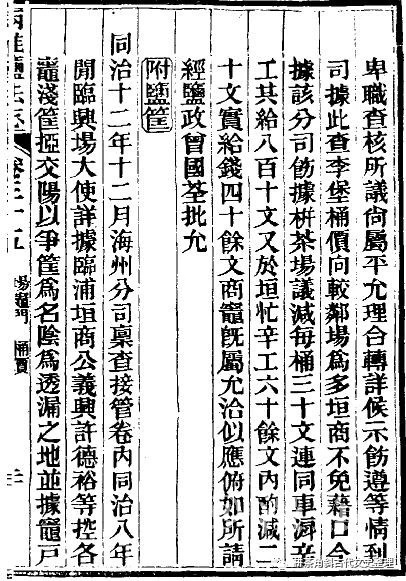 卑職查核所議尙屬平允理合轉詳候示飭遵等情到
司據此查李堡桶價向較鄰場爲多垣商不免藉口今
據該分司飭據栟茶場議減每桶三十文連同車溽辛
工共給八百十文又於垣忙辛工六十餘文內酌減二
十文實給錢四十餘文商竈旣屬允洽似應俯如所請
經鹽政曾國荃批允
附鹽筐
同治十二年十二月海州分司稟查接管卷內同治八年
閒臨興場大使詳據臨浦垣商公義興許德裕等控各
竈淺筐掗交陽以爭筐爲名陰爲透漏之地並據竈戸
兩淮鹽法志
卷三十五
場竈門
桶價